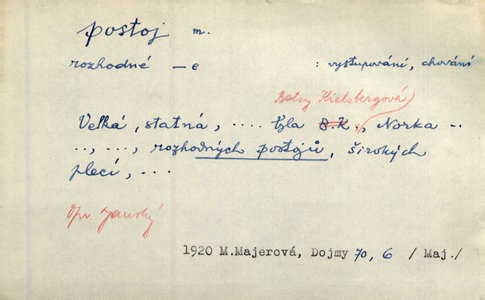 postoj m.
rozhodné –e : vystupování, chování
Betsy Kielsbergová
Velká, statná, .... šla B.K., Norka ..
.., ..., rozhodných postojů, širokých
plecí, ...
Opr.
1920 M.Majerová, Dojmy 70, 6 / Maj./